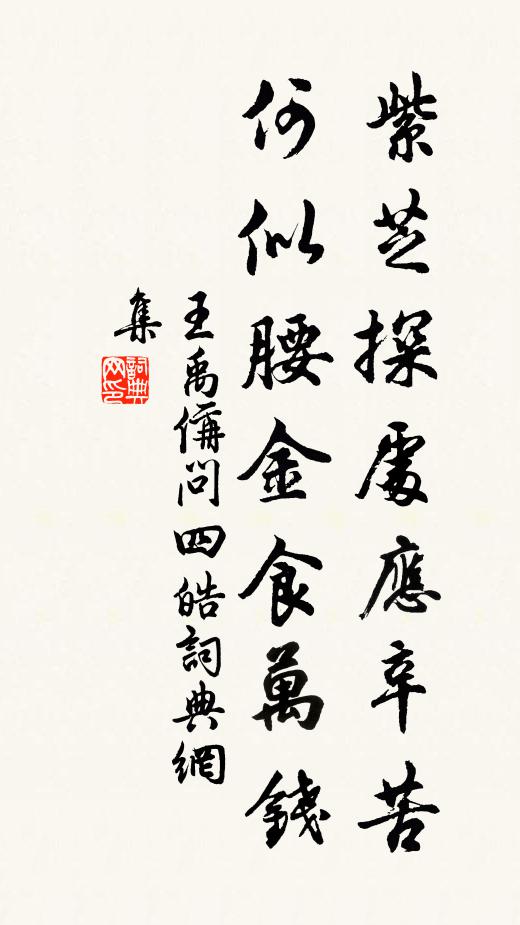 紫芝探處應辛苦
何似腰金食萬錢
王禹偁問四皓詞典網
集
詞典网印